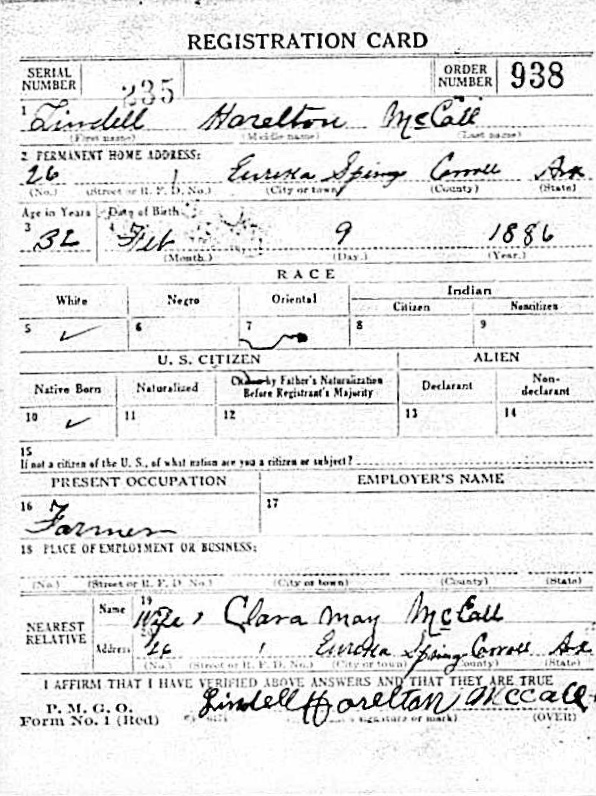 REGISTRATION CARD
SERIAL NUMBER 235 ORDER NUMBER 938
1 Lindell Harelton McCall
(First name) (Middle name) (Last name)
2 PERMANENT HOME ADDRESS:
26 1 Eureka Springs Carroll Ark
(No.) (Street or R. F. D. No.) (City or town) (County) (State)
Age in Years Date of Birth
3 32 4 Feb 9 1886
(Month.) (Day.) (Year.)
RACE
White Negro Oriental Indian
Citizen Noncitizen
5 ✓ 6 7 8 9
U. S. CITIZEN ALIEN
Native Born Naturalized Citizen by Father's Naturalization Before Registrant's Majority Declarant Non-declarant
10 ✓ 11 12 13 14
15
If not a citizen of the U. S., of what nation are you a citizen or subject?
PRESENT OCCUPATION EMPLOYER'S NAME
16 Farmer 17
18 PLACE OF EMPLOYMENT OR BUSINESS:
(No.) (Street or R. F. D. No.) (City or town) (County) (State)
NEAREST RELATIVE Name 19 Wife, Clara May McCall
Address 20 26 1 Eureka Spring Carroll Ark
(No.) (Street or R. F. D. No.) (City or town) (County) (State)
I AFFIRM THAT I HAVE VERIFIED ABOVE ANSWERS AND THAT THEY ARE TRUE
P. M. G. O.
Form No. 1 (Red) Lindell Harelton McCall
signature or mark) (OVER)